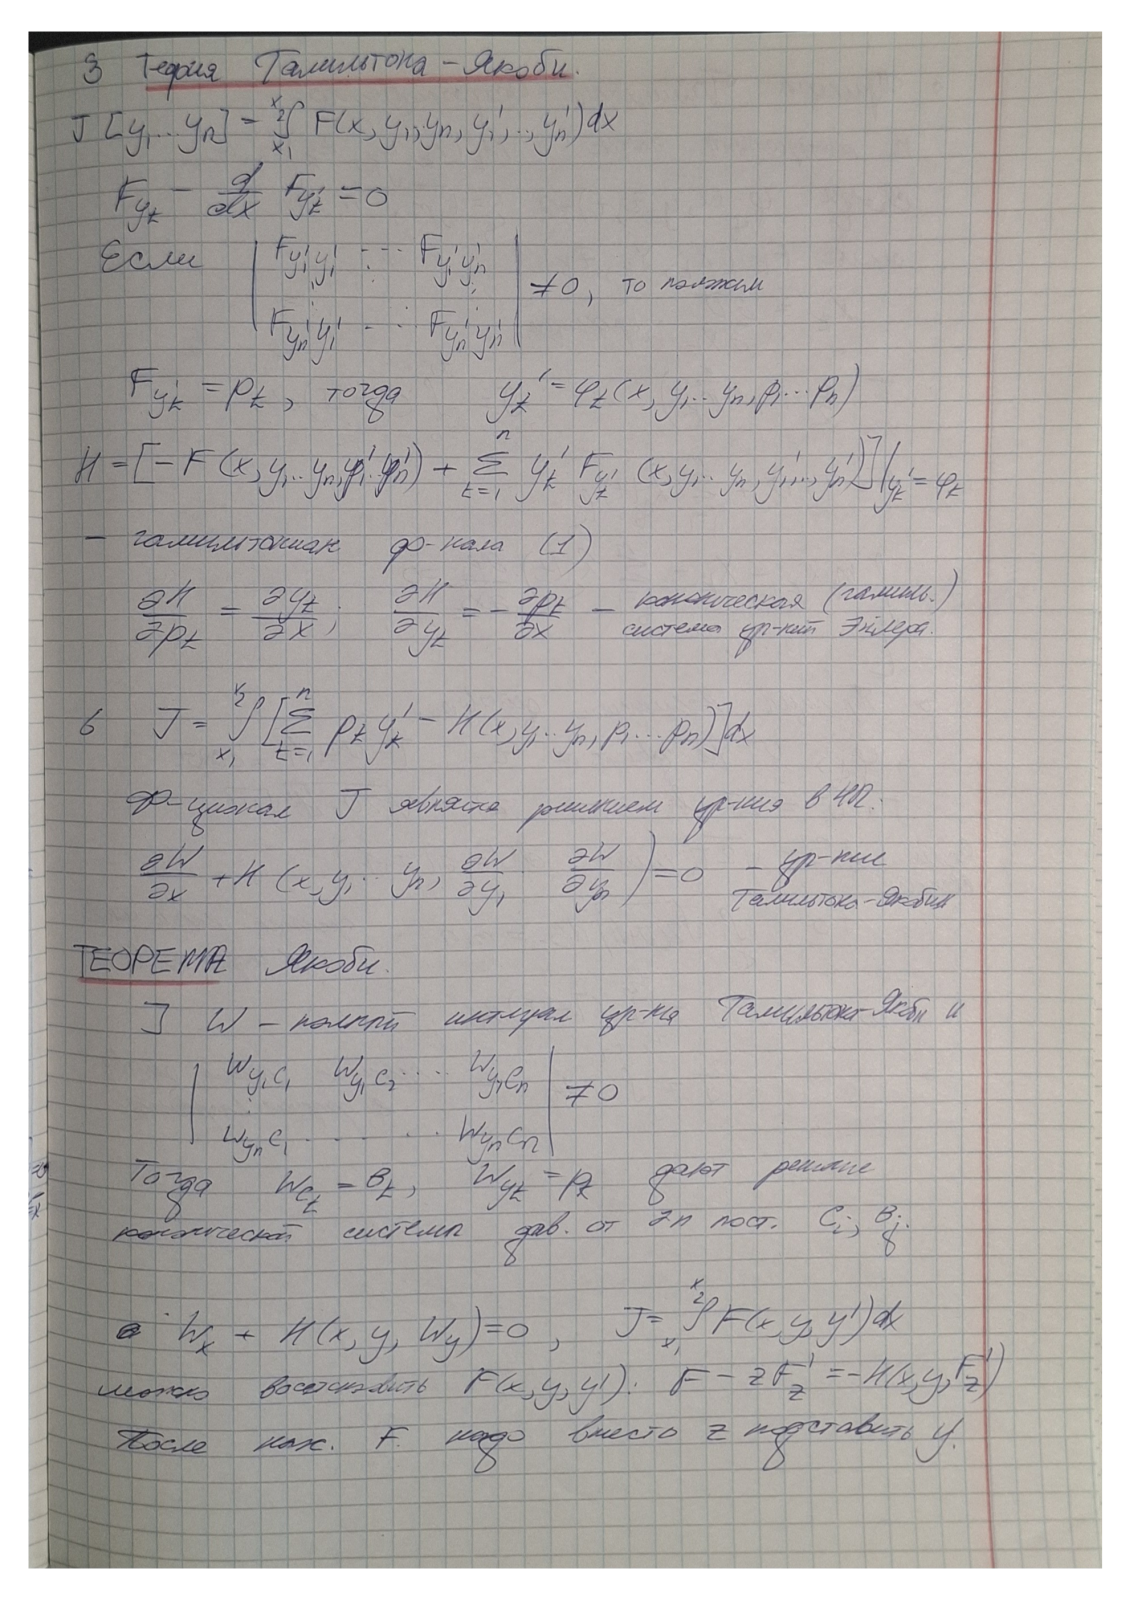 3 Теория Гамильтона-Якоби.
J[y₁...yₙ] = ∫_{x₁}^{x₂} F(x, y₁, yₙ, y₁', .., yₙ')dx
F_{y_k} - d/dx F_{y_k'} = 0
Если | F_{y₁'y₁'} ... F_{y₁'yₙ'} ; F_{yₙ'y₁'} ... F_{yₙ'yₙ'} | ≠ 0, то положим
F_{y_k'} = p_k, тогда y_k' = φ_k(x, y₁...yₙ, p₁...pₙ)
H = [-F(x, y₁...yₙ, y₁'...yₙ') + Σ_{k=1}^{n} y_k' F_{y_k'}(x, y₁...yₙ, y₁',..., yₙ')]|_{y_k' = φ_k}
- гамильтониан ф-нала (1)
∂H/∂p_k = ∂y_k/∂x; ∂H/∂y_k = -∂p_k/∂x - каноническая (гамиль.)
система ур-ний Эйлера.
6 J = ∫_{x₁}^{x₂} [Σ_{k=1}^{n} p_k y_k' - H(x, y₁...yₙ, p₁...pₙ)]dx
Ф-ционал J явлется решением ур-ния в ЧП:
∂W/∂x + H(x, y₁...yₙ, ∂W/∂y₁ ∂W/∂yₙ) = 0 - ур-ние
Гамильтона-Якоби
ТЕОРЕМА Якоби.
] W - полный интеграл ур-на Гамильтона-Якоби и
| W_{y₁c₁} W_{y₁c₂} .... W_{y₁cₙ} ; W_{yₙc₁} ... W_{yₙcₙ} | ≠ 0
Тогда W_{c_k} = B_k, W_{y_k} = p_k дают решение
канонической системы зав. от 2n пост. C_i, B_j.
W_x + H(x, y, W_y) = 0, J = ∫_{x₁}^{x₂} F(x, y, y')dx
можно восстановить F(x, y, y'): F - zF_z' = -H(x, y, F_z')
После нах. F. надо вместо z подставить y'.